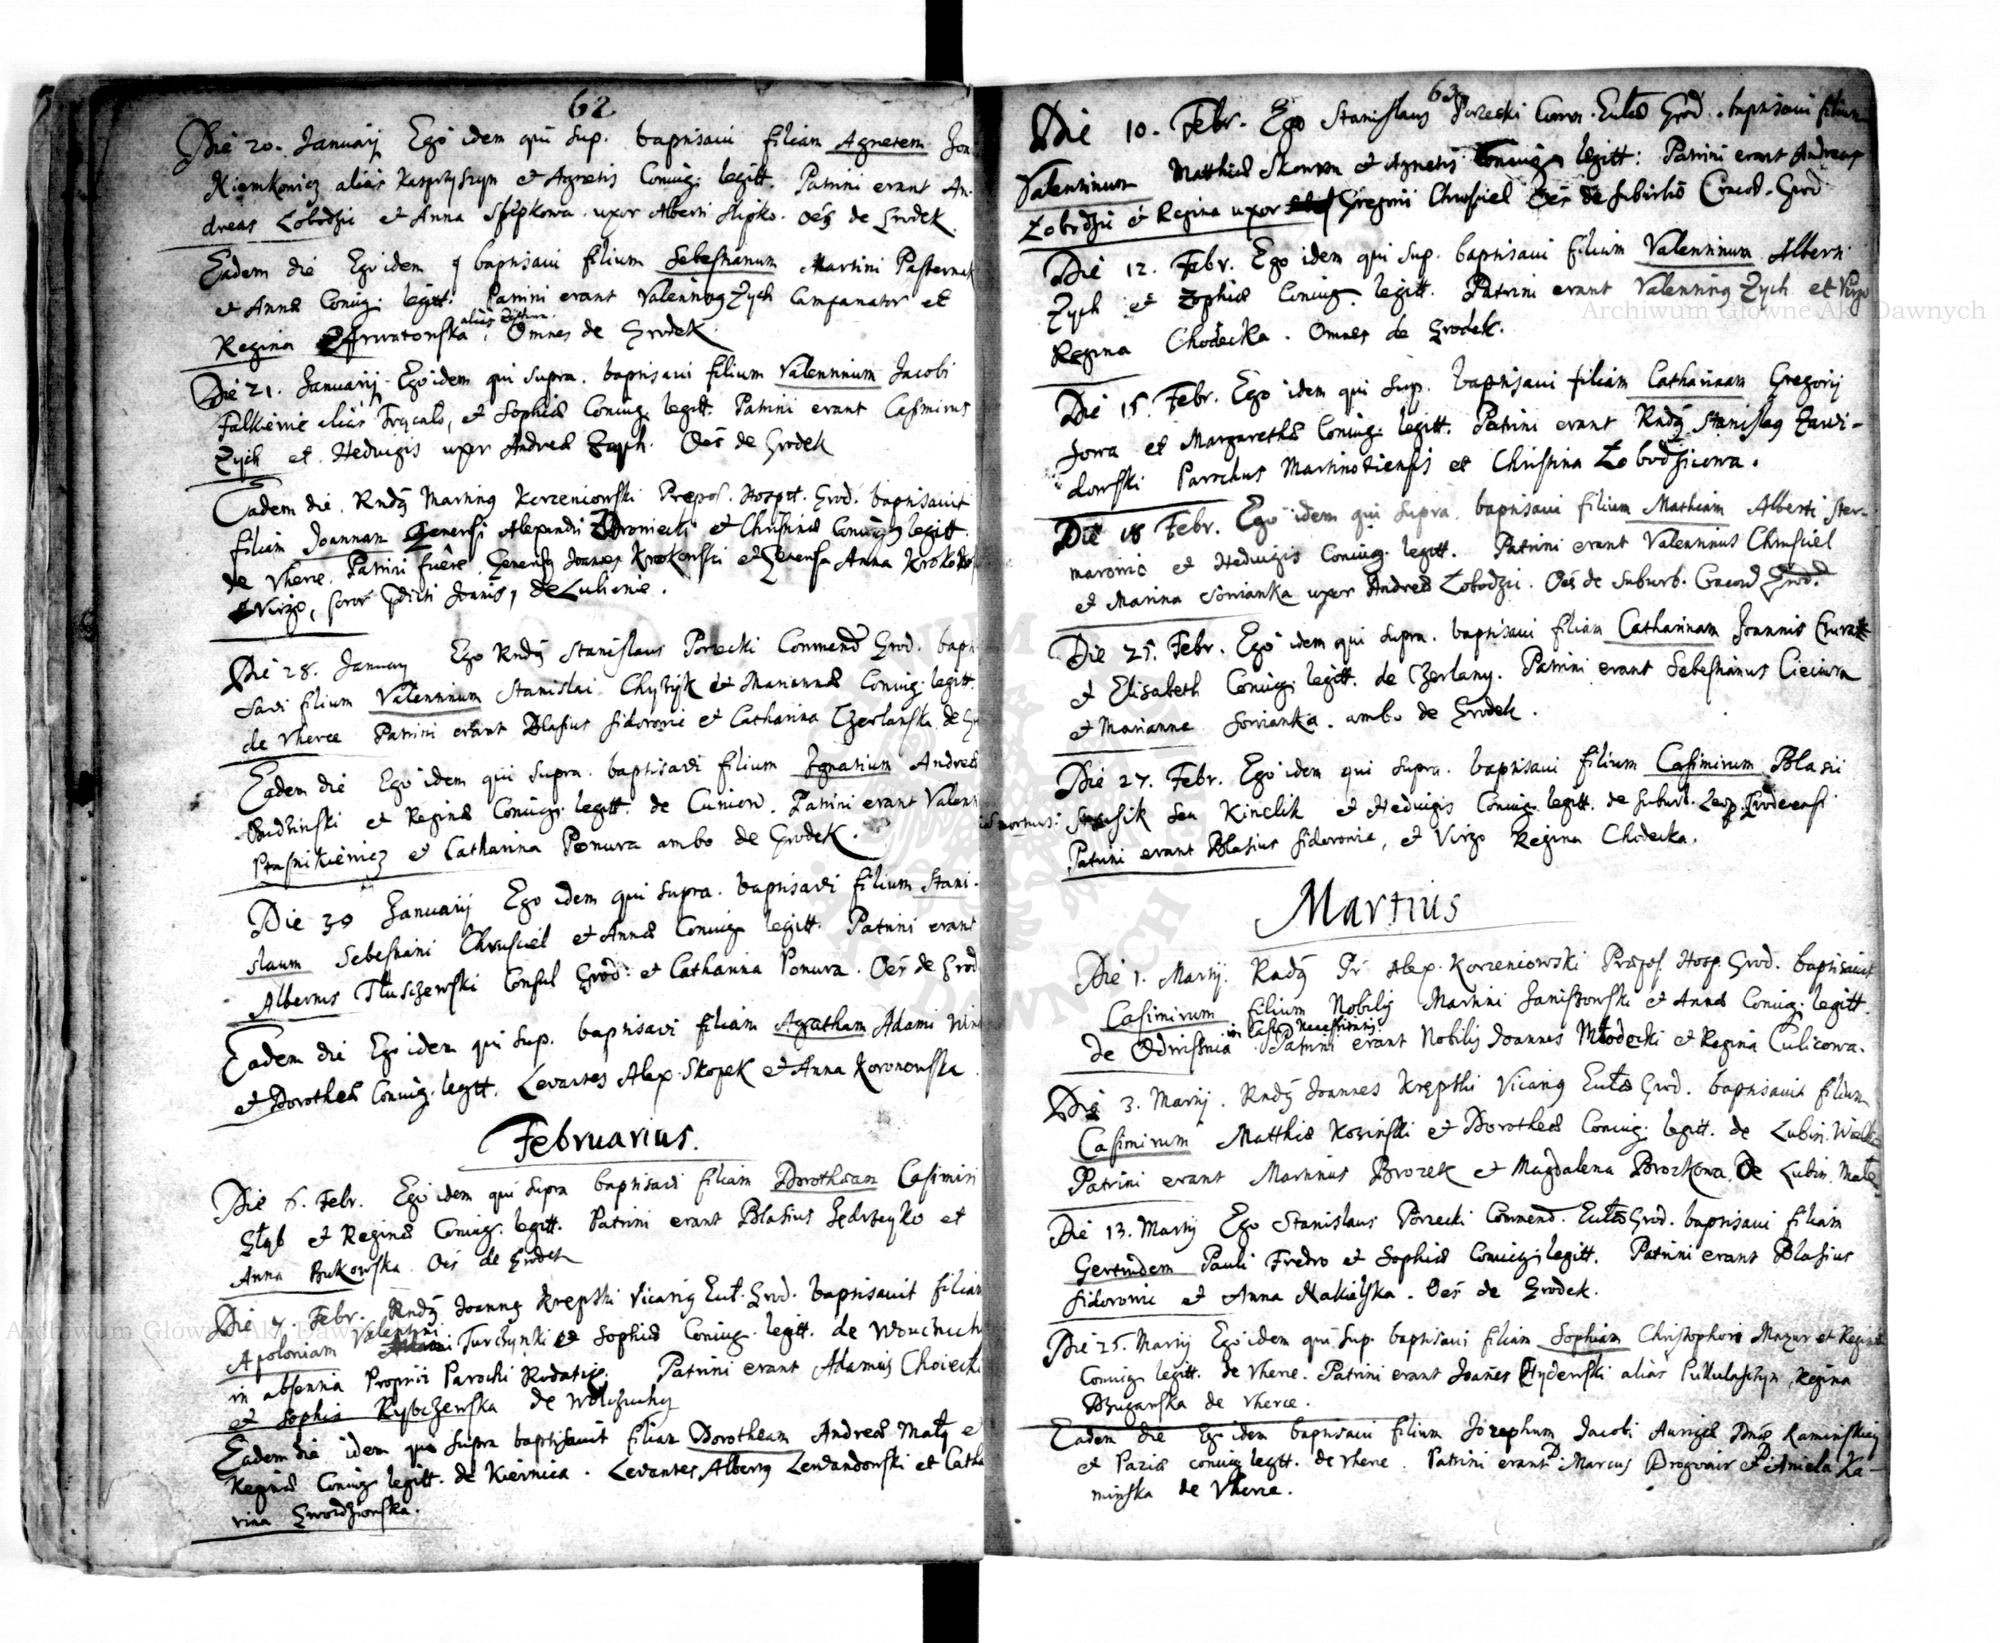 62
Die 20. Januarij Ego idem qui sup. baptisavi filiam Agnetem
Niemkowicz alias Kasprzyszyn et Agnetis Coniug. legitt. Patrini erant An-
dreas Łobodzic et Anna Slepkowa uxor Alberti Slipko. Oes de Grodek.
Eadem die Ego idem q baptisavi filium Sebestianum Martini Pasternak
et Annæ Coniug. legitt. Patrini erant Valentinus Zych Campanator et
alias
Regina . Omnes de Grodek
Die 21. Januarij Ego idem qui supra. baptisavi filium Valentinum Jacobi
Falkienic alias et Sophiæ Coniug. legitt. Patrini erant Casimirus
Zych et Hedvigis uxor Andreæ Zych. Oes de Grodek
Eadem die. Rndus Martinus Korzeniowski Prepos. Hospit. Grod. baptisavit
filiam Joannam Generosi Alexandri et Christinæ Coniug legitt.
de Vherce. Patrini fuere Generosus Joannes Krokowski et Generosa Anna
Virgo, soror pdicti Joannis, de Lubienie.
Die 28. January Ego Rndus Stanislaus Porzecki Commend Grod. bapti-
savi filium Valentinum Stanislai Chytyk et Mariannæ Coniug. legitt.
de Vherce Patrini erant Blasius Sidorovic et Catharina Czerlanska de
Eadem die Ego idem qui supra. baptisavi filium Ignatium Andreæ
Budzinski et Reginæ Coniug. legitt. de Cuniow. Patrini erant Valent
Ptasnikiewicz et Catharina Ponura ambo de Grodek.
Die 30 Januarij Ego idem qui supra. baptisavi filium Stani-
slaum Sebestiani Chrusciel et Annæ Coniug legitt. Patrini erant
Albertus Tłusczewski Consul Grod: et Catharina Ponura. Oes de Grod
Eadem die Ego idem qui sup. baptisavi filiam Agatham Adami
et Dorotheæ Coniug. legitt. Levantes Alex. Skopek et Anna Koronowska
Februarius.
Die 6. Febr. Ego idem qui supra baptisavi filiam Dorotheam Casimiri
Głąb et Reginæ Coniug. legitt. Patrini erant Blasius Jędrzeyko et
Anna Bukowska. Oes de Grodek
Die 7 Febr. Rndus Joannes Krepski Vicarius Eccl. Grod. baptisavit filiam
Valentini
Apoloniam Turczynski et Sophiæ Coniug. legitt. de
in absentia Proprii Parochi Patrini erant Adamus
et Sophia Rybczewska de
Eadem die idem qui supra baptisavit filiam Dorotheam Andreæ Mały et
Reginæ Coniug. legitt. de Kiernica. Levantes Albertus Lewandowski et Catha
rina Gwordziowska.
63
Die 10. Febr. Ego Stanislaus Porzecki Comen. Eccl Grod. baptisavi filium
Valentinum Matthiæ Skowron et Agnetis Coniug legitt: Patrini erant Andreas
Łobodzic et Regina uxor Gregorii Chrusciel Oes de suburbio Cracov. Grod
Die 12. Febr. Ego idem qui sup. baptisavi filium Valentinum Alberti
Zych et Zophiæ Coniug. legitt. Patrini erant Valentinus Zych et Virgo
Regina Chodecka. Omnes de Grodek.
Die 15. Febr. Ego idem qui sup. baptisavi filiam Catharinam Gregorij
Jowa et Margarethæ Coniug. legitt. Patrini erant Rndus Stanislaus Zawi-
dowski Parochus et Christina Łobodzicowa.
Die 18 Febr. Ego idem qui supra. baptisavi filium Mathiam Alberti
et Hedvigis Coniug. legitt. Patrini erant Valentinus Chrusciel
et Marina uxor Andreæ Łobodzic. Oes de Suburb. Cracov Grod.
Die 25. Febr. Ego idem qui supra. baptisavi filiam Catharinam Joannis
et Elisabeth Coniug. legitt. de Czerlany. Patrini erant Sebestianus
et Marianne . ambo de Grodek.
Die 27. Febr. Ego idem qui supra. baptisavi filium Casimirum Blasii
seu Kinclik et Hedvigis Coniug legitt. de suburb. Leop.
Patrini erant Blasius Sidorovic, et Virgo Regina Chodecka.
Martius
Die 1. Martij. Rndus Pr Alex. Korzeniowski Præpos. Hosp. Grod. baptisavit
Casimirum filium Nobilis Martini Janiszowski et Annæ Coniug. legitt.
in Casu Necessitatis
de Patrini erant Nobilis Joannes Młodecki et Regina Culicowa.
Die 3. Martij. Rndus Joannes Krepski Vicarius Eccl Grod. baptisavit filium
Casimirum Matthiæ Kozinski et Dorotheæ Coniug. legitt. de Lubin
Patrini erant Martinus Brozek et Magdalena Brozkowa. de Lubin
Die 13. Martij Ego Stanislaus Porzecki Commend. Eccl Grod. baptisavi filiam
Gertrudem Pauli Fredro et Sophiæ Coniug legitt. Patrini erant Blasius
Sidorovic et Anna Nakielska. Oes de Grodek.
Die 25. Martij Ego idem qui sup. baptisavi filiam Sophiam Christophori Mazur et Reginæ
Coniug. legitt. de Vherce. Patrini erant Joanes alias Regina
de Vherce.
Eadem die Ego idem baptisavi filium Jozephum Jacobi
et coniug legtt. de Vherce. Patrini erant Marcus et Aniela Ka-
minska de Vherce.
Archiwum Główne Akt Dawnych